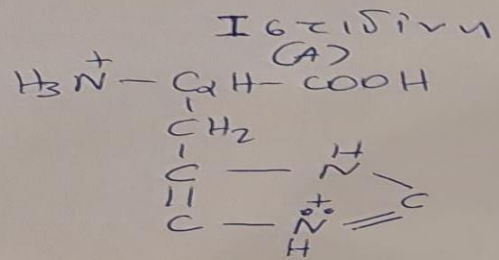 Ιστιδίνη
(A)
H₃N⁺ — CαH — COOH
CH₂
C — NH
C
C — N⁺H